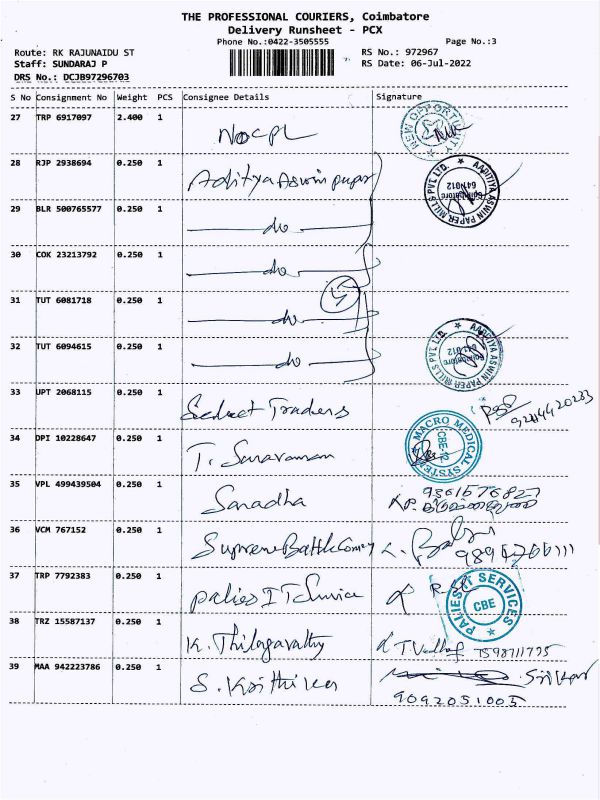 THE PROFESSIONAL COURIERS, Coimbatore
Delivery Runsheet - PCX
Phone No.:0422-3505555
Page No.:3
Route: RK RAJUNAIDU ST
RS No.: 972967
Staff: SUNDARAJ P
RS Date: 06-Jul-2022
DRS No.: DCJB97296703
S No Consignment No Weight PCS Consignee Details Signature
27 TRP 6917097 2.400 1 NOCPL
NEW OPPORTUNITY
28 RJP 2938694 0.250 1 Aditya Aswin paper
AADITIYA ASWIN PAPER MILLS PVT LTD. Coimbatore 641 012
29 BLR 500765577 0.250 1 do
30 COK 23213792 0.250 1 do
5
31 TUT 6081718 0.250 1 do
32 TUT 6094615 0.250 1 do
AADITIYA ASWIN PAPER MILLS PVT LTD. Coimbatore 641 012
33 UPT 2068115 0.250 1 Select Traders
34 DPI 10228647 0.250 1 T. Saravanan
MACRO MEDICAL SYSTEMS CBE-12
35 VPL 499439504 0.250 1 Saradha
36 VCM 767152 0.250 1 Supreme
37 TRP 7792383 0.250 1 palies IT Service
PALIES IT SERVICES CBE
38 TRZ 15587137 0.250 1 K. Thilagavathy
7598711775
39 MAA 942223786 0.250 1 S. Karthikea
9092051005